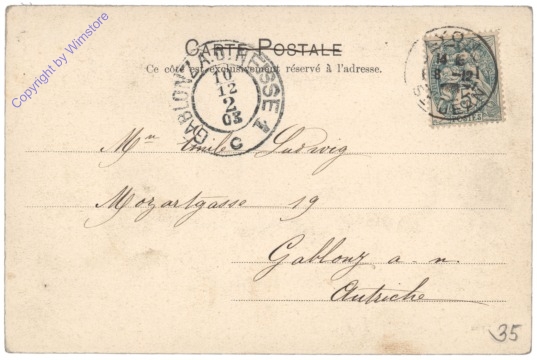 Copyright by Wimstore
CARTE POSTALE
Ce côté est exclusivement réservé à l'adresse.
GABLONZ A.D. NEISSE 1
10
12
2
03
C
LYON
8 -12
Mr Emile Ludwig
Mozartgasse 19
Gablonz a. n.
Autriche
35